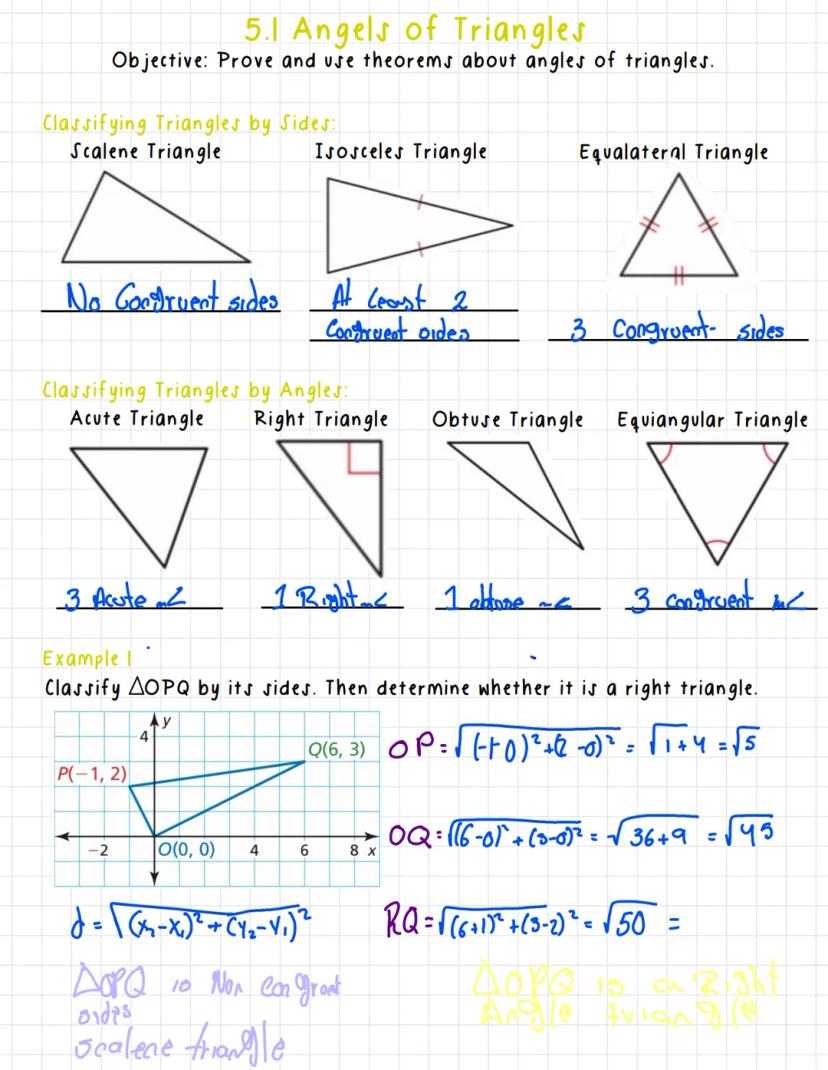 5.1 Angels of Triangles
Objective: Prove and use theorems about angles of triangles.
Classifying Triangles by Sides:
Scalene Triangle
Isosceles Triangle
Equalateral Triangle
No Congruent sides
At least 2
Congruent sides
3 Congruent sides
Classifying Triangles by Angles:
Acute Triangle
Right Triangle
Obtuse Triangle
Equiangular Triangle
3 Acute m<
1 Right m<
1 obtose m<
3 congruent m<
Example 1
Classify △OPQ by its sides. Then determine whether it is a right triangle.
y
4
Q(6, 3)
P(−1, 2)
−2
O(0, 0)
4
6
8
x
OP = √(-1-0)²+(2-0)² = √1+4 = √5
OQ = √(6-0)²+(3-0)² = √36+9 = √45
d = √(x₂-x₁)²+(y₂-y₁)²
RQ = √(6+1)²+(3-2)² = √50 =
△OPQ is Non Congroet
sides
scalene triangle
△OPQ is a Right
Angle triangle